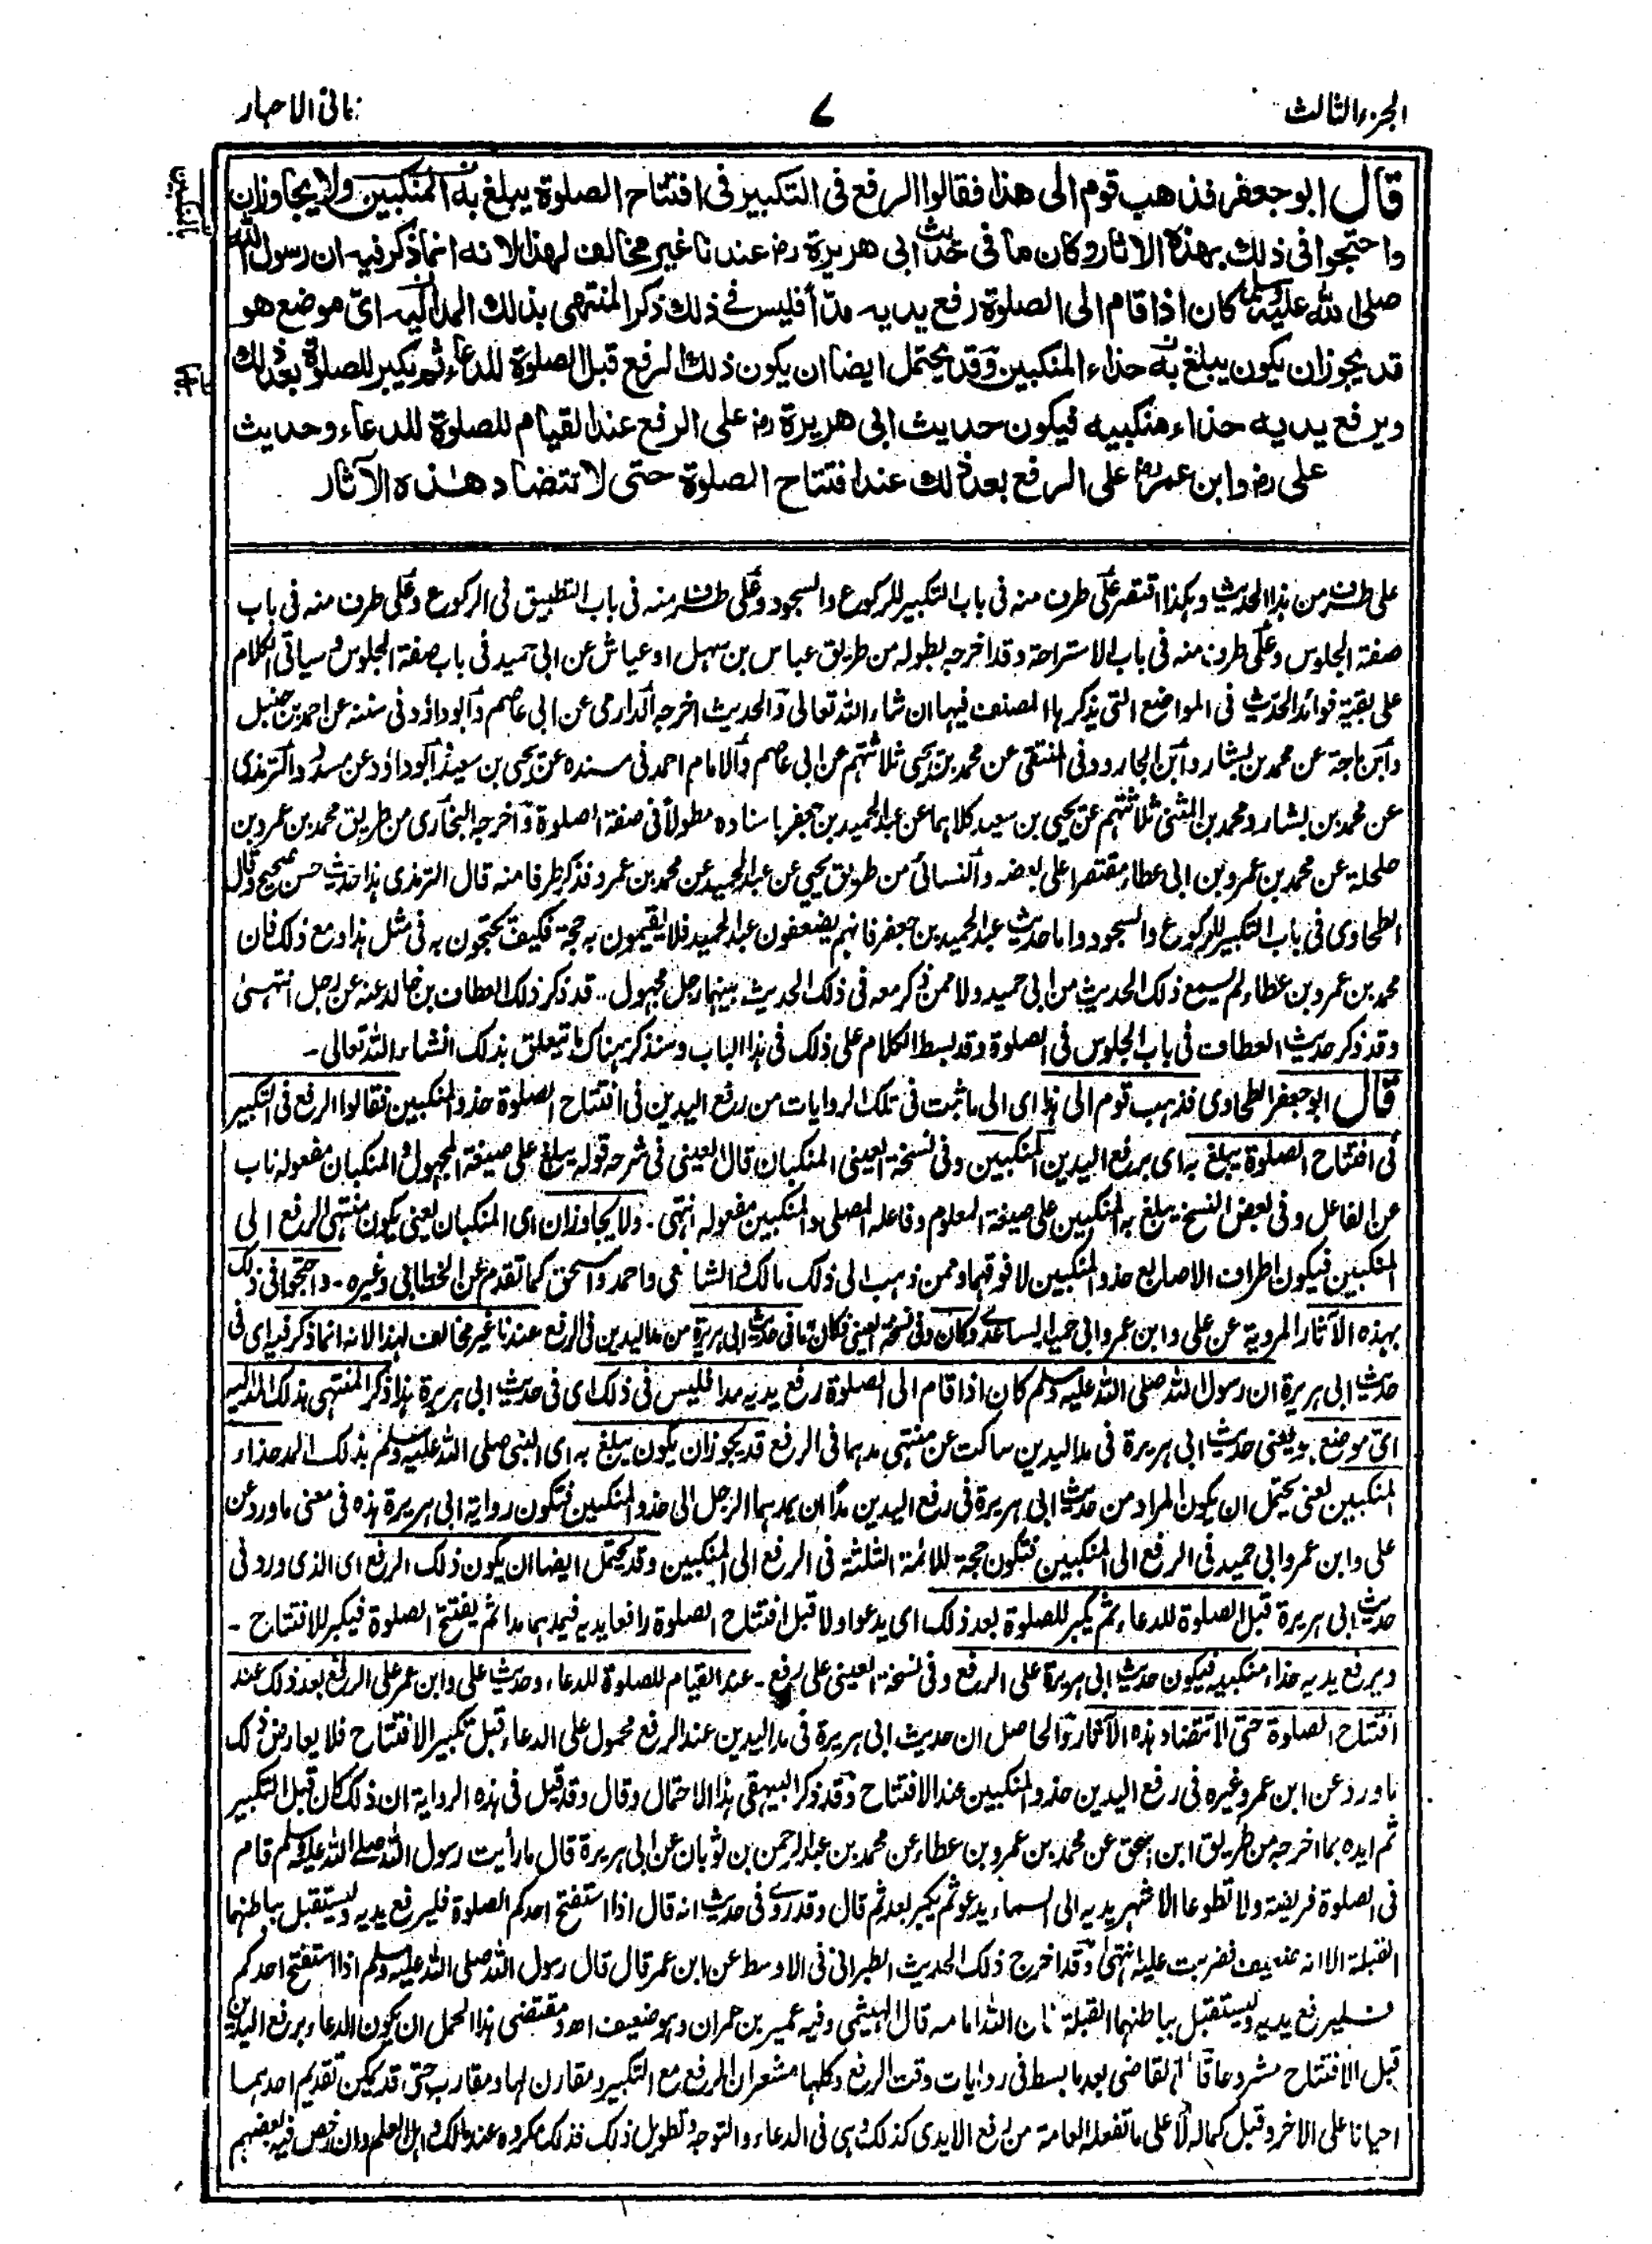 الجزء الثالث
٧
امانى الاحبار
قال ابو جعفر فذهب قوم الى هذا فقالوا الرفع فى التكبير فى افتتاح الصلوة يبلغ به المنكبين ولا يجاوزان
واحتجوا فى ذلك بهذه الاثار وكان ما فى حديث ابى هريرة رض عندنا غير مخالف لهذا لانه انما ذكر فيه ان رسول الله
صلى الله عليه وسلم كان اذا قام الى الصلوة رفع يديه مدّاً فليس فى ذلك ذكر المنتهى بذلك المد اليه اىّ موضع هو
قد يجوز ان يكون يبلغ به حذاء المنكبين وقد يحتمل ايضا ان يكون ذلك الرفع قبل الصلوة للدعاء ثم يكبر للصلوة بعد ذلك
ويرفع يديه حذاء منكبيه فيكون حديث ابى هريرة رض على الرفع عند القيام للصلوة للدعاء وحديث
على رض وابن عمر رض على الرفع بعد ذلك عند افتتاح الصلوة حتى لا تتضاد هذه الآثار
على طرف من هذا الحديث وهكذا اقتصر على طرف منه فى باب التكبير للركوع والسجود وعلى طرف منه فى باب التطبيق فى الركوع وعلى طرف منه فى باب
صفة الجلوس وعلى طرف منه فى باب الاستراحة وقد اخرجه بطوله من طريق عباس بن سهل او عياش عن ابى حميد فى باب صفة الجلوس وسياتى الكلام
على بقية فوائد الحديث فى المواضع التى يذكرها المصنف فيها ان شاء الله تعالى والحديث اخرجه الدارمى عن ابى عاصم وابو داؤد فى سننه عن احمد بن حنبل
وابن ماجة عن محمد بن بشار وابن الجارود فى المنتقى عن محمد بن يحيى ثلاثتهم عن ابى عاصم والامام احمد فى مسنده عن يحيى بن سعيد وابو داؤد عن مسدد والترمذى
عن محمد بن بشار ومحمد بن المثنى ثلاثتهم عن يحيى بن سعيد كلاهما عن عبد الحميد بن جعفر باسناده مطولاً فى صفة الصلوة واخرجه البخارى من طريق محمد بن عمرو بن
حلحلة عن محمد بن عمرو بن ابى عطاء مقتصرا على بعضه والنسائى من طريق يحيى عن عبد الحميد عن محمد بن عمرو فذكر طرفا منه قال الترمذى هذا حديث حسن صحيح وقال
الطحاوى فى باب التكبير للركوع والسجود واما حديث عبد الحميد بن جعفر فانهم يضعفون عبد الحميد فلا يقيمون به حجة فكيف يحتجون به فى مثل هذا ومع ذلك فان
محمد بن عمرو بن عطاء لم يسمع ذلك الحديث من ابى حميد ولا ممن ذكر معه فى ذلك الحديث بينهما رجل مجهول .. قد ذكر ذلك العطاف بن خالد عنه عن رجل انتهى
وقد ذكر حديث العطاف فى باب الجلوس فى الصلوة وقد بسط الكلام على ذلك فى هذا الباب وسنذكر هناك ما يتعلق بذلك انشاء الله تعالى -
قال ابو جعفر الطحاوى فذهب قوم الى هذا اى الى ما ثبت فى تلك الروايات من رفع اليدين فى افتتاح الصلوة حذو المنكبين فقالوا الرفع فى التكبير
فى افتتاح الصلوة يبلغ به اى برفع اليدين المنكبين وفى نسخة العينى المنكبان قال العينى فى شرحه قوله يبلغ على صيغة المجهول والمنكبان مفعوله ناب
عن الفاعل وفى بعض النسخ يبلغ به المنكبين على صيغة المعلوم وفاعله المصلى والمنكبين مفعوله انتهى - ولا يجاوزان اى المنكبان يعنى يكون منتهى الرفع الى
المنكبين فيكون اطراف الاصابع حذو المنكبين لا فوقهما وممن ذهب الى ذلك مالك والشافعى واحمد واسحق كما تقدم عن الخطابى وغيره - واحتجوا فى ذلك
بهذه الآثار المروية عن على وابن عمر وابى حميد الساعدى وكان وفى نسخة العينى فكان ما فى حديث ابى هريرة من مد اليدين فى الرفع عندنا غير مخالف لهذا لانه انما ذكر فيه اى فى
حديث ابى هريرة ان رسول الله صلى الله عليه وسلم كان اذا قام الى الصلوة رفع يديه مدا فليس فى ذلك اى فى حديث ابى هريرة هذا ذكر المنتهى بذلك المد اليه
اىّ موضع هو يعنى حديث ابى هريرة فى مد اليدين ساكت عن منتهى مدهما فى الرفع قد يجوز ان يكون يبلغ به اى النبى صلى الله عليه وسلم بذلك المد حذاء
المنكبين يعنى يحتمل ان يكون المراد من حديث ابى هريرة فى رفع اليدين مدا ان يمدهما الرجل الى حذو المنكبين فتكون رواية ابى هريرة هذه فى معنى ما ورد عن
على وابن عمر وابى حميد فى الرفع الى المنكبين فتكون حجة للائمة الثلثة فى الرفع الى المنكبين وقد يحتمل ايضا ان يكون ذلك الرفع اى الذى ورد فى
حديث ابى هريرة قبل الصلوة للدعاء ثم يكبر للصلوة بعد ذلك اى يدعو اولا قبل افتتاح الصلوة رافعا يديه فيمدهما مدا ثم يفتتح الصلوة فيكبر للافتتاح -
ويرفع يديه حذاء منكبيه فيكون حديث ابى هريرة على الرفع وفى نسخة العينى على رفع - عند القيام للصلوة للدعاء وحديث على وابن عمر على الرفع بعد ذلك عند
افتتاح الصلوة حتى لا تتضاد هذه الآثار والحاصل ان حديث ابى هريرة فى مد اليدين عند الرفع محمول على الدعاء قبل تكبير الافتتاح فلا يعارض ذلك
ما ورد عن ابن عمر وغيره فى رفع اليدين حذو المنكبين عند الافتتاح وقد ذكر البيهقى هذا الاحتمال وقال وقد قيل فى هذه الرواية ان ذلك كان قبل التكبير
ثم ايده بما اخرجه من طريق ابن اسحق عن محمد بن عمرو بن عطاء عن محمد بن عبد الرحمن بن ثوبان عن ابى هريرة قال ما رأيت رسول الله صلى الله عليه وسلم قام
فى الصلوة فريضة ولا تطوعا الا شهر يديه الى السماء يدعو ثم يكبر بعد ثم قال وقد روى فى حديث انه قال اذا استفتح احدكم الصلوة فليرفع يديه وليستقبل بباطنهما
القبلة الا انه ضعيف فضربت عليه انتهى وقد اخرج ذلك الحديث الطبرانى فى الاوسط عن ابن عمر قال قال رسول الله صلى الله عليه وسلم اذا استفتح احدكم
فليرفع يديه وليستقبل بباطنهما القبلة فان الله امامه قال الهيثمى وفيه عمير بن عمران وهو ضعيف اھ ومقتضى هذا المحمل ان يكون الدعاء برفع اليدين
قبل الافتتاح مشروعا قال القاضى بعد ما بسط فى روايات وقت الرفع وكلها مشعر ان الرفع مع التكبير ومقارن لها ومقارب حتى قد يمكن تقديم احدهما
احيانا على الاخر وقبل كماله لا على ما تفعله العامة من رفع الايدى كذلك وهى فى الدعاء والتوجه وتطويل ذلك فذلك مكروه عند مالك واهل العلم وان رخص فيه بعضهم